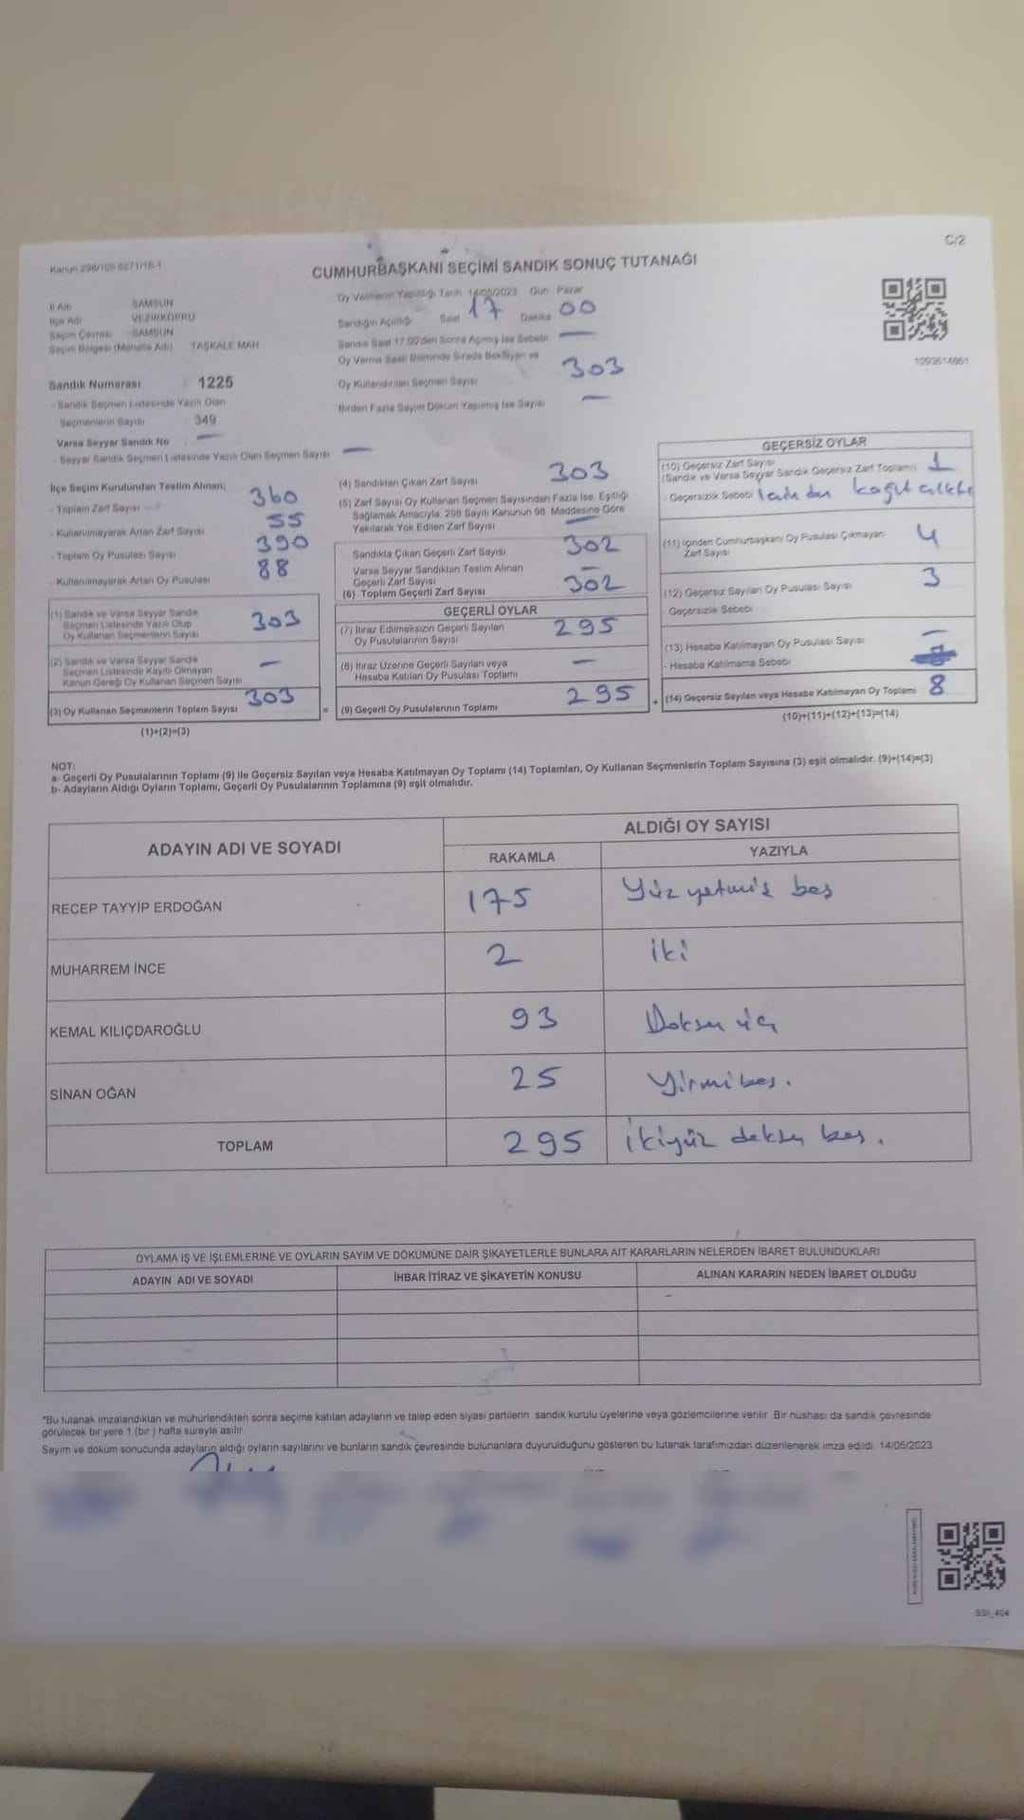 C/2
CUMHURBAŞKANI SEÇİMİ SANDIK SONUÇ TUTANAĞI
İli Adı SAMSUN
İlçe Adı VEZİRKÖPRÜ
Seçim Çevresi SAMSUN
Seçim Bölgesi (Mahalle Adı) TAŞKALE MAH
Sandık Numarası 1225
- Sandık Seçmen Listesinde Yazılı Olan
Seçmenlerin Sayısı 349
Varsa Seyyar Sandık No —
- Seyyar Sandık Seçmen Listesinde Yazılı Olan Seçmen Sayısı —
Oy Vermenin Yapıldığı Tarih 14/05/2023 Gün Pazar
Sandığın Açıldığı Saat 17 Dakika 00
Sandık Saat 17:00'den Sonra Açılmış İse Sebebi —
Oy Verme Saati Bitiminde Sırada Bekleyen ve
Oy Kullandırılan Seçmen Sayısı 303
Birden Fazla Sayım Döküm Yapılmış İse Sayısı —
1093614861
İlçe Seçim Kurulundan Teslim Alınan;
- Toplam Zarf Sayısı 360
- Kullanılmayarak Artan Zarf Sayısı 55
- Toplam Oy Pusulası Sayısı 390
- Kullanılmayarak Artan Oy Pusulası 88
(1) Sandık ve Varsa Seyyar Sandık
Seçmen Listesinde Yazılı Olup
Oy Kullanan Seçmenlerin Sayısı 303
(2) Sandık ve Varsa Seyyar Sandık
Seçmen Listesinde Kayıtlı Olmayan
Kanun Gereği Oy Kullanan Seçmen Sayısı —
(3) Oy Kullanan Seçmenlerin Toplam Sayısı 303
(1)+(2)=(3)
(4) Sandıktan Çıkan Zarf Sayısı 303
(5) Zarf Sayısı Oy Kullanan Seçmen Sayısından Fazla İse, Eşitliği
Sağlamak Amacıyla, 298 Sayılı Kanunun 98. Maddesine Göre
Yakılarak Yok Edilen Zarf Sayısı —
Sandıkta Çıkan Geçerli Zarf Sayısı 302
Varsa Seyyar Sandıktan Teslim Alınan
Geçerli Zarf Sayısı —
(6) Toplam Geçerli Zarf Sayısı 302
GEÇERLİ OYLAR
(7) İtiraz Edilmeksizin Geçerli Sayılan
Oy Pusulalarının Sayısı 295
(8) İtiraz Üzerine Geçerli Sayılan veya
Hesaba Katılan Oy Pusulası Toplamı —
= (9) Geçerli Oy Pusulalarının Toplamı 295
GEÇERSİZ OYLAR
(10) Geçersiz Zarf Sayısı
(Sandık ve Varsa Seyyar Sandık Geçersiz Zarf Toplamı) 1
- Geçersizlik Sebebi
(11) İçinden Cumhurbaşkanı Oy Pusulası Çıkmayan
Zarf Sayısı 4
(12) Geçersiz Sayılan Oy Pusulası Sayısı 3
- Geçersizlik Sebebi
(13) Hesaba Katılmayan Oy Pusulası Sayısı —
- Hesaba Katılmama Sebebi
(14) Geçersiz Sayılan veya Hesaba Katılmayan Oy Toplamı 8
(10)+(11)+(12)+(13)=(14)
NOT:
a- Geçerli Oy Pusulalarının Toplamı (9) ile Geçersiz Sayılan veya Hesaba Katılmayan Oy Toplamı (14) Toplamları, Oy Kullanan Seçmenlerin Toplam Sayısına (3) eşit olmalıdır. (9)+(14)=(3)
b- Adayların Aldığı Oyların Toplamı, Geçerli Oy Pusulalarının Toplamına (9) eşit olmalıdır.
ADAYIN ADI VE SOYADI
ALDIĞI OY SAYISI
RAKAMLA YAZIYLA
RECEP TAYYİP ERDOĞAN 175 Yüz yetmiş beş
MUHARREM İNCE 2 iki
KEMAL KILIÇDAROĞLU 93 Doksan üç
SİNAN OĞAN 25 Yirmi beş.
TOPLAM 295 ikiyüz doksan beş.
OYLAMA İŞ VE İŞLEMLERİNE VE OYLARIN SAYIM VE DÖKÜMÜNE DAİR ŞİKAYETLERLE BUNLARA AİT KARARLARIN NELERDEN İBARET BULUNDUKLARI
ADAYIN ADI VE SOYADI İHBAR İTİRAZ VE ŞİKAYETİN KONUSU ALINAN KARARIN NEDEN İBARET OLDUĞU
*Bu tutanak imzalandıktan ve mühürlendikten sonra seçime katılan adayların ve talep eden siyasi partilerin sandık kurulu üyelerine veya gözlemcilerine verilir. Bir nüshası da sandık çevresinde
görülecek bir yere 1 (bir) hafta süreyle asılır.
Sayım ve döküm sonucunda adayların aldığı oyların sayılarını ve bunların sandık çevresinde bulunanlara duyurulduğunu gösteren bu tutanak tarafımızdan düzenlenerek imza edildi. 14/05/2023